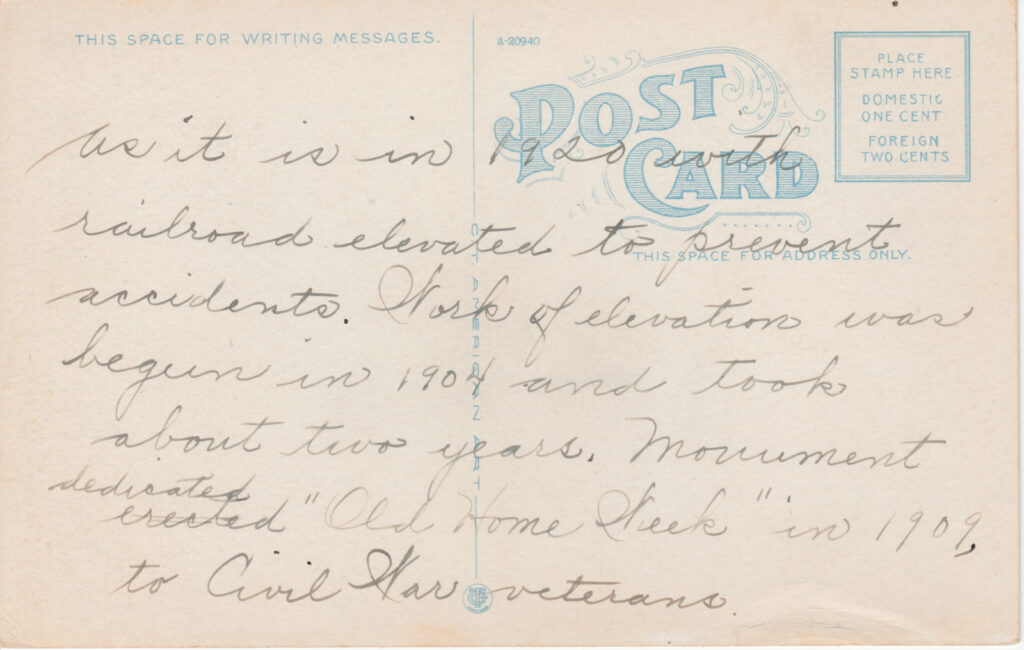 THIS SPACE FOR WRITING MESSAGES.
A-20940
POST
CARD
PLACE
STAMP HERE
DOMESTIC
ONE CENT
FOREIGN
TWO CENTS
THIS SPACE FOR ADDRESS ONLY.
C. T. AMERICAN ART
As it is in 1920 with
railroad elevated to prevent
accidents. Work of elevation was
begun in 1904 and took
about two years. Monument
dedicated
erected "Old Home Week" in 1909,
to Civil War veterans.